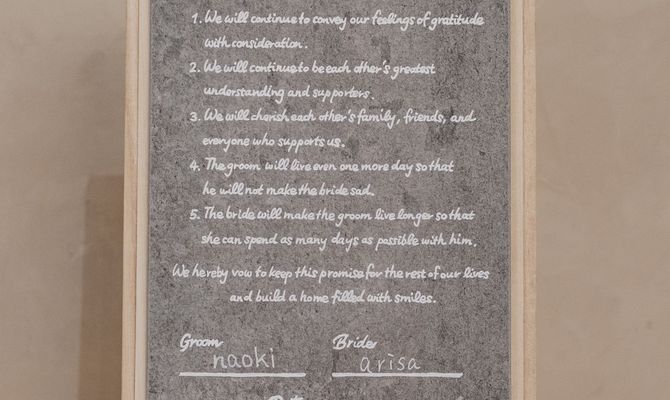 1. We will continue to convey our feelings of gratitude
with consideration.
2. We will continue to be each other's greatest
understanding and supporters.
3. We will cherish each other's family, friends, and
everyone who supports us.
4. The groom will live even one more day so that
he will not make the bride sad.
5. The bride will make the groom live longer so that
she can spend as many days as possible with him.
We hereby vow to keep this promise for the rest of our lives
and build a home filled with smiles.
Groom Bride
naoki arisa